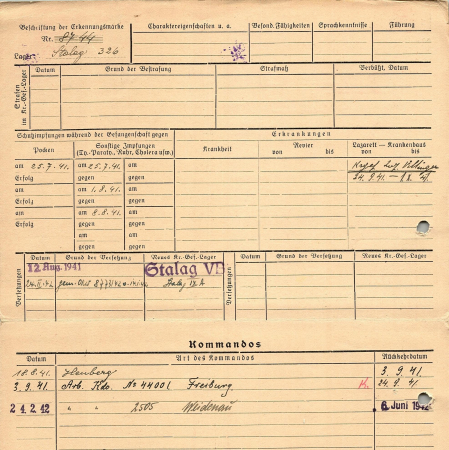 Beschriftung der Erkennungsmarke Charaktereigenschaften u. a. Besond. Fähigkeiten Sprachkenntnisse Führung
Nr. 8744
Lager: Stalag 326
Strafen im Kr.-Gef.-Lager Datum Grund der Bestrafung Strafmaß Verbüßt, Datum
Schutzimpfungen während der Gefangenschaft gegen Erkrankungen
Pocken Sonstige Impfungen (Ty.-Paraty., Ruhr, Cholera usw.) Krankheit Revier von bis Lazarett — Krankenhaus von bis
am 25.7.41. am 25.7.41.
Erfolg gegen
am am 1.8.41.
Erfolg gegen
am am 8.8.41. 24.9.41.
Erfolg gegen
am
gegen
am
gegen
Versetzungen Datum Grund der Versetzung Neues Kr.-Gef.-Lager Versetzungen Datum Grund der Versetzung Neues Kr.-Gef.-Lager
12 Aug. 1941 Stalag VB
Stalag IX A
Kommandos
Datum Art des Kommandos Rückkehrdatum
18.8.41. 3.9.41.
3.9.41. Arb. Kdo. No 44001 Freiburg 24.9.41.
24.2.42 " " 2505 Weidenau 6. Juni 1942